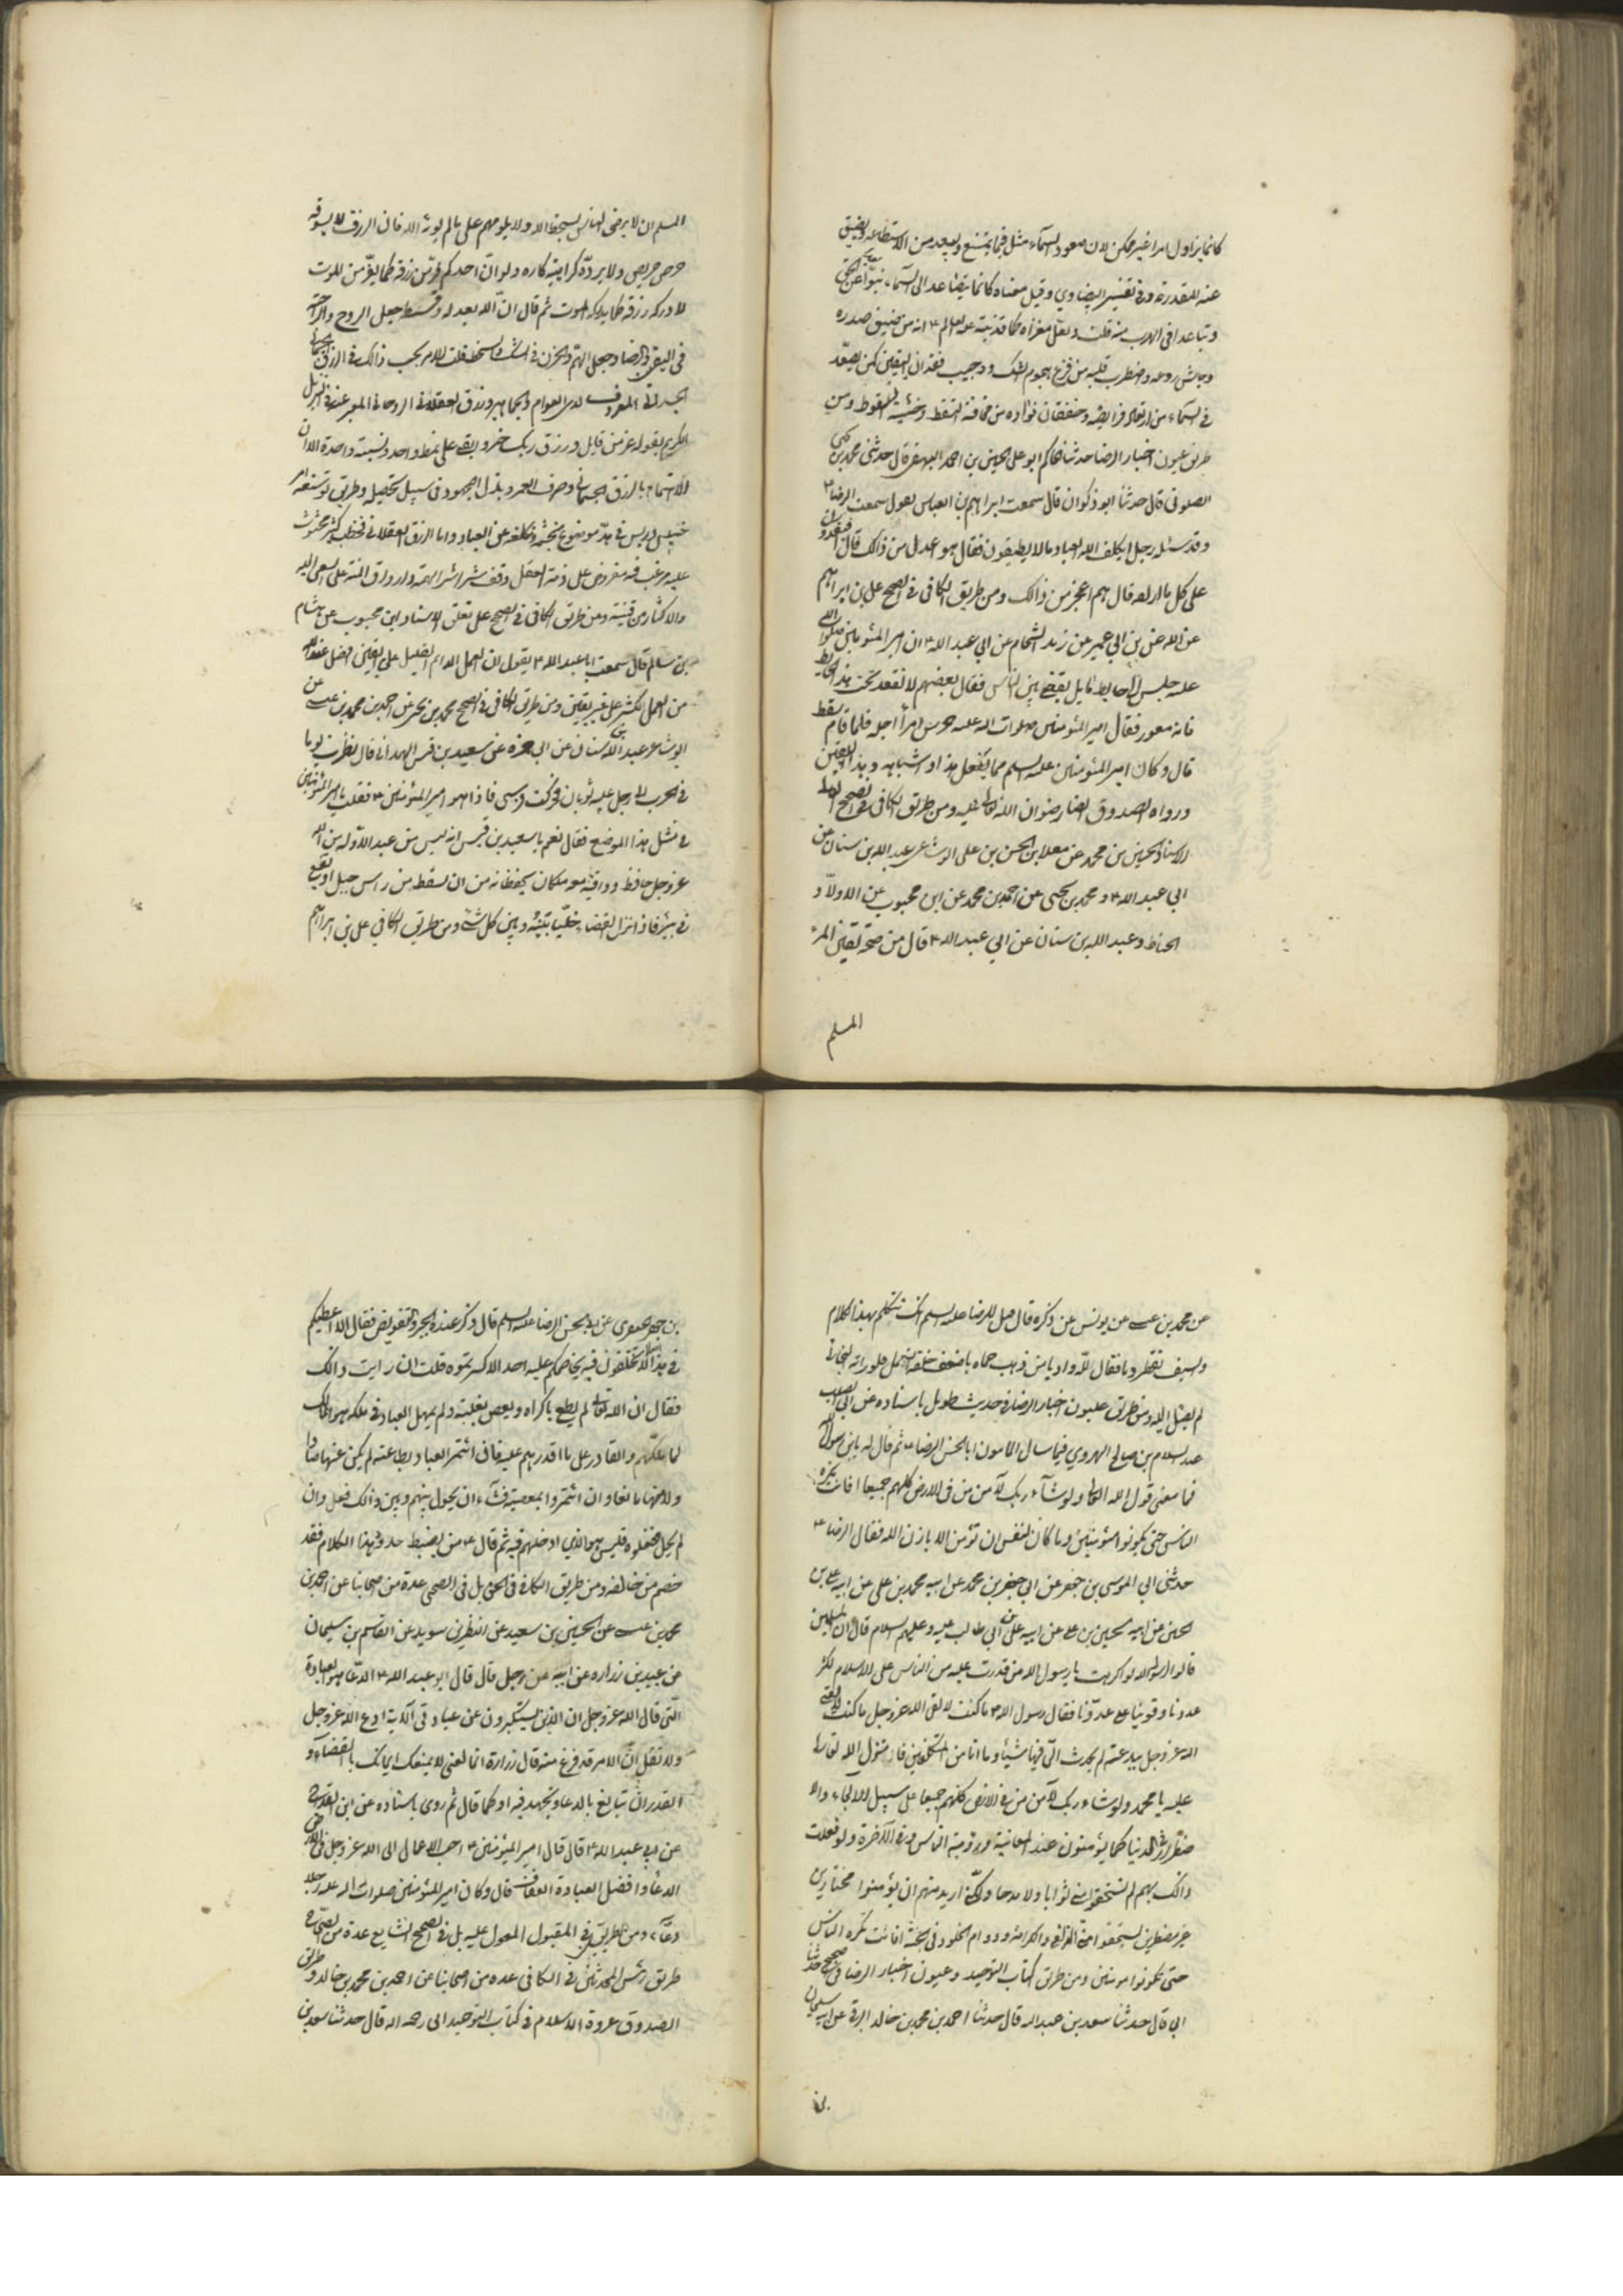 كانما يزاول امرا غير ممكن لان صعود السماء مثل فيما يمتنع ويبعد من الاستطاعة ويضيق
عنه المقدرة وفي تفسير البيضاوي وقيل معناه كانما يتصاعد الى السماء نبوّا عن الحق
وتباعدا في الهرب منه قلت ولعل مغزاه كما قد نبّه عليه العالم ع انه من ضيق صدره
وجاش روعه واضطرب قلبه من فزع هجوم الشك ووجيب فقدان اليقين كمن يصعّد
في السماء من ارتعاد فرايصه وخفقان فؤاده من مخافة السقط وخشية السقوط ومن
طريق عيون اخبار الرضا حدثنا الحاكم ابو علي الحسين بن احمد البيهقي قال حدثني محمد بن يحيى
الصولي قال حدثنا ابو ذكوان قال سمعت ابراهيم بن العباس يقول سمعت الرضا ع
وقد سئله رجل ايكلف الله العباد ما لا يطيقون فقال هو اعدل من ذالك قال افيقدرون
على كل ما ارادوه قال هم اعجز من ذالك ومن طريق الكافي في الصحيح علي بن ابراهيم
عن ابيه عن ابن ابي عمير عن زيد الشحام عن ابي عبد الله ع ان امير المئومنين صلوات الله
عليه جلس الى حايط مايل يقضي بين الناس فقال بعضهم لا تقعد تحت هذا الحايط
فانه معور فقال امير المئومنين صلوات الله عليه حرس امرأ اجله فلما قام سقط
قال وكان امير المئومنين عليه السلم مما يفعل هذا واشباهه وهذا اليقين
ورواه الصدوق ايضا رضوان الله تعالى عليه ومن طريق الكافي في الصحيح العالي
الاسناد الحسين بن محمد عن معلا بن الحسن بن علي الوشا عن عبد الله بن سنان عن
ابي عبد الله ع ومحمد بن يحيى عن احمد بن محمد عن ابن محبوب عن ابي ولّاد
الحناط وعبد الله بن سنان عن ابي عبد الله ع قال من صحة يقين المرء
المسلم
المسلم ان لا يرضى الناس بسخط الله ولا يلومهم على ما لم يؤته الله فان الرزق لا يسوقه
حرص حريص ولا يردّه كراهية كاره ولو انّ احدكم فرّ من رزقه كما يفرّ من الموت
لادركه رزقه كما يدركه الموت ثم قال ان الله بعدله وقسطه جعل الروح والراحة
في اليقين والرضا وجعل الهمّ والحزن في الشك والسخط قلت الامر بحسب ذالك في الرزق الجسماني
الجسداني المعروف لدى العوام والجماهير ورزق العقلاني الروحاني المعبر عنه في التنزيل
الكريم بقوله عز من قايل ورزق ربك خير وابقى على نمط واحد ونسبة واحدة الا ان
الاهتمام بالرزق الجسماني وصرف العمر وبذل المجهود في سبيل تحصيله وطريق توسعته امر
خسيس ليس في هذا موضوع وكلفة عن العباد واما الرزق العقلاني فخطب كثير محثوث
عليه مرغب فيه مفروض على ذمة العقل وقف شراشر الهمة وارواق المنة على السعي اليه
والاكثار من قنيته ومن طريق الكافي في الصحيح على تعلق الاسناد ابن محبوب عن هشام
بن سالم قال سمعت ابا عبد الله ع يقول ان العمل الدائم القليل على اليقين افضل عند الله
من العمل الكثير على غير يقين ومن طريق الكافي في الصحيح محمد بن يحيى عن احمد بن محمد بن عيسى عن
الوشا عن عبد الله بن سنان عن ابي حمزه عن سعيد بن قيس الهمداني قال نظرت يوما
في الحرب الى رجل عليه ثوبان فحركت فرسي فاذا هو امير المئومنين ع فقلت يا امير المئومنين
في مثل هذا الموضع فقال نعم يا سعيد بن قيس انه ليس من عبد الا وله من الله
عز وجل حافظ وواقية معه ملكان يحفظانه من ان يسقط من راس جبل او يقع
في بئر فاذا نزل القضاء خلّيا بينه وبين كل شئ ومن طريق الكافي علي بن ابراهيم
عن محمد بن عيسى عن يونس عن ذكره قال قيل للرضا عليه السلم انك تتكلم بهذا الكلام
والسيف يقطر دما فقال لله واديا من ذهب حماه باضعف خلقه النمل فلو رامه البخاتي
لم يصل اليه ومن طريق عيون اخبار الرضا في حديث طويل باسناده عن ابي الصلت
عبد السلام بن صالح الهروي فيما سال المامون ابا الحسن الرضا ع ثم قال له يابن رسول الله
فما معنى قول الله تعالى ولو شآء ربك لآمن من في الارض كلهم جميعا افانت تكره
الناس حتى يكونوا مئومنين وما كان لنفس ان تؤمن الا باذن الله فقال الرضا ع
حدثني ابي الموسى بن جعفر عن ابي جعفر بن محمد عن ابيه محمد بن علي عن ابيه علي بن
الحسين عن ابيه حسين بن علي عن ابيه علي بن ابي طالب عليه وعليهم السلام قال ان المسلمين
قالوا لرسول الله لو اكرهت يا رسول الله من قدرت عليه من الناس على الاسلام لكثر
عددنا وقوينا على عدوّنا فقال رسول الله ع ما كنت لالقى الله عز وجل ما كنت لالقى
الله عز وجل ببدعته لم يحدث الىّ فيها شيئا وما انا من المتكلفين فانزل الله تعالى
عليه يا محمد ولو شاء ربك لآمن من في الارض كلهم جميعا على سبيل الالجاء والا
ضطرار في الدنيا كما يؤمنون عند المعاينة ورؤية الباس وفي الآخرة ولو فعلت
ذالك بهم لم يستحقوا مني ثوابا ولا مدحا ولكنّي اريد منهم ان يؤمنوا مختارين
غير مضطرين ليستحقوا منّي الزلفى والكرامة ودوام الخلود في جنة افانت تكره الناس
حتى يكونوا مومنين ومن طريق كتاب التوحيد وعيون اخبار الرضا في الصحيح حدثنا
ابي قال حدثنا سعد بن عبد الله قال حدثنا احمد بن محمد بن خالد البرقي عن ابيه سليمان
بن
بن جعفر الجعفري عن ابي الحسن الرضا عليه السلم قال ذكر عنده الجبر والتفويض فقال الا اعطيكم
في هذا اصلا لا تختلفون فيه ولا يخاصمكم عليه احد الا كسرتموه قلت ان رايت ذالك
فقال ان الله تعالى لم يطع باكراه ولم يعص بغلبة ولم يهمل العباد في ملكه هو المالك
لما ملّكهم والقادر على ما اقدرهم عليه فان ائتمر العباد بطاعته لم يكن عنها صادا
ولا منها مانعا وان ائتمروا بمعصيته فشآء ان يحول بينهم وبين ذالك فعل وان
لم يحل ففعلوه فليس هو الذي ادخلهم فيه ثم قال ع من يضبط حدود هذا الكلام فقد
خصم من خالفه ومن طريق الكافي في الحسن بل في الصحيح عدة من اصحابنا عن احمد بن
محمد بن عيسى عن الحسين بن سعيد عن النظر بن سويد عن القاسم بن سليمان
عن عبيد بن زراره عن ابيه عن رجل قال قال ابو عبد الله ع الدعا هو العبادة
التي قال الله عز وجل ان الذين يستكبرون عن عبادتي الآية ادع الله عز وجل
ولا تقل انّ الامر قد فرغ منه قال زرارة انما يعني لا يمنعك ايمانك بالقضآء و
القدر ان تبالغ بالدعا وتجتهد فيه او كما قال ثم روى باسناده عن ابن القداح
عن ابي عبد الله ع قال قال امير المئومنين ع احب الاعمال الى الله عز وجل في الارض
الدعاء وافضل العبادة العفاف قال وكان امير المئومنين صلوات الله عليه رجلا
دعّآء ومن طريق في المقبول المعول عليه بل في الصحيح الشايع عدة من اصحابنا
طريق رئيس المحدثين في الكافي عده من اصحابنا عن احمد بن محمد بن خالد و طريق
الصدوق عروة الاسلام في كتاب التوحيد ابي رحمه الله قال حدثنا سعد بن